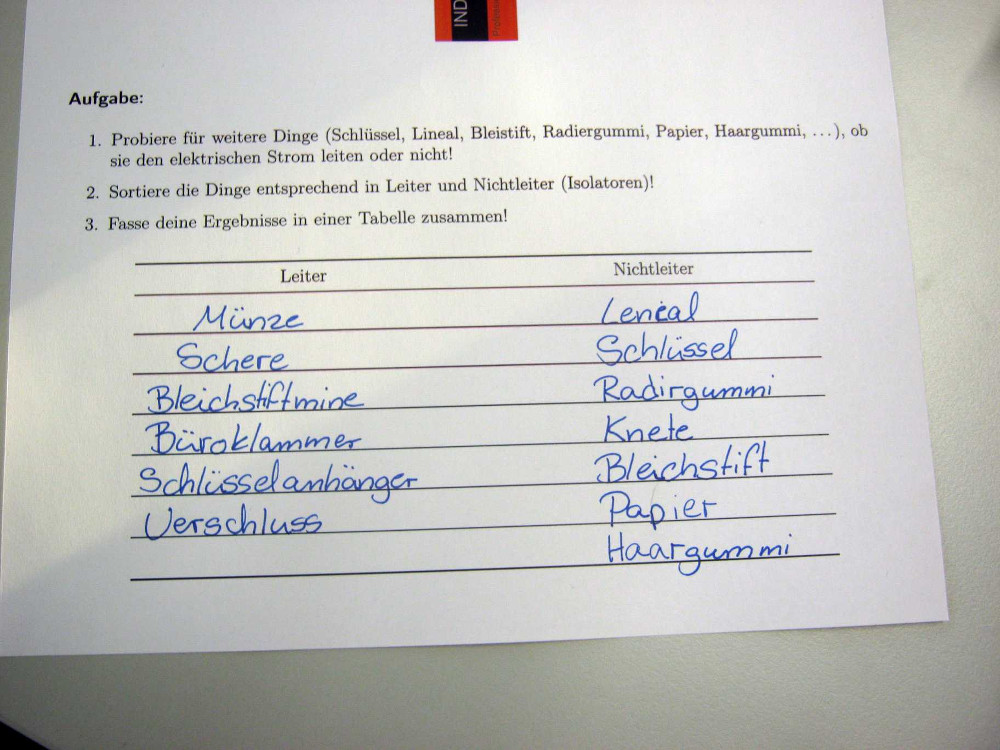 IND
Aufgabe:
1. Probiere für weitere Dinge (Schlüssel, Lineal, Bleistift, Radiergummi, Papier, Haargummi, ...), ob
sie den elektrischen Strom leiten oder nicht!
2. Sortiere die Dinge entsprechend in Leiter und Nichtleiter (Isolatoren)!
3. Fasse deine Ergebnisse in einer Tabelle zusammen!
Leiter Nichtleiter
Münze Leneal
Schere Schlüssel
Bleichstiftmine Radirgummi
Büroklammer Knete
Schlüsselanhänger Bleichstift
Verschluss Papier
Haargummi